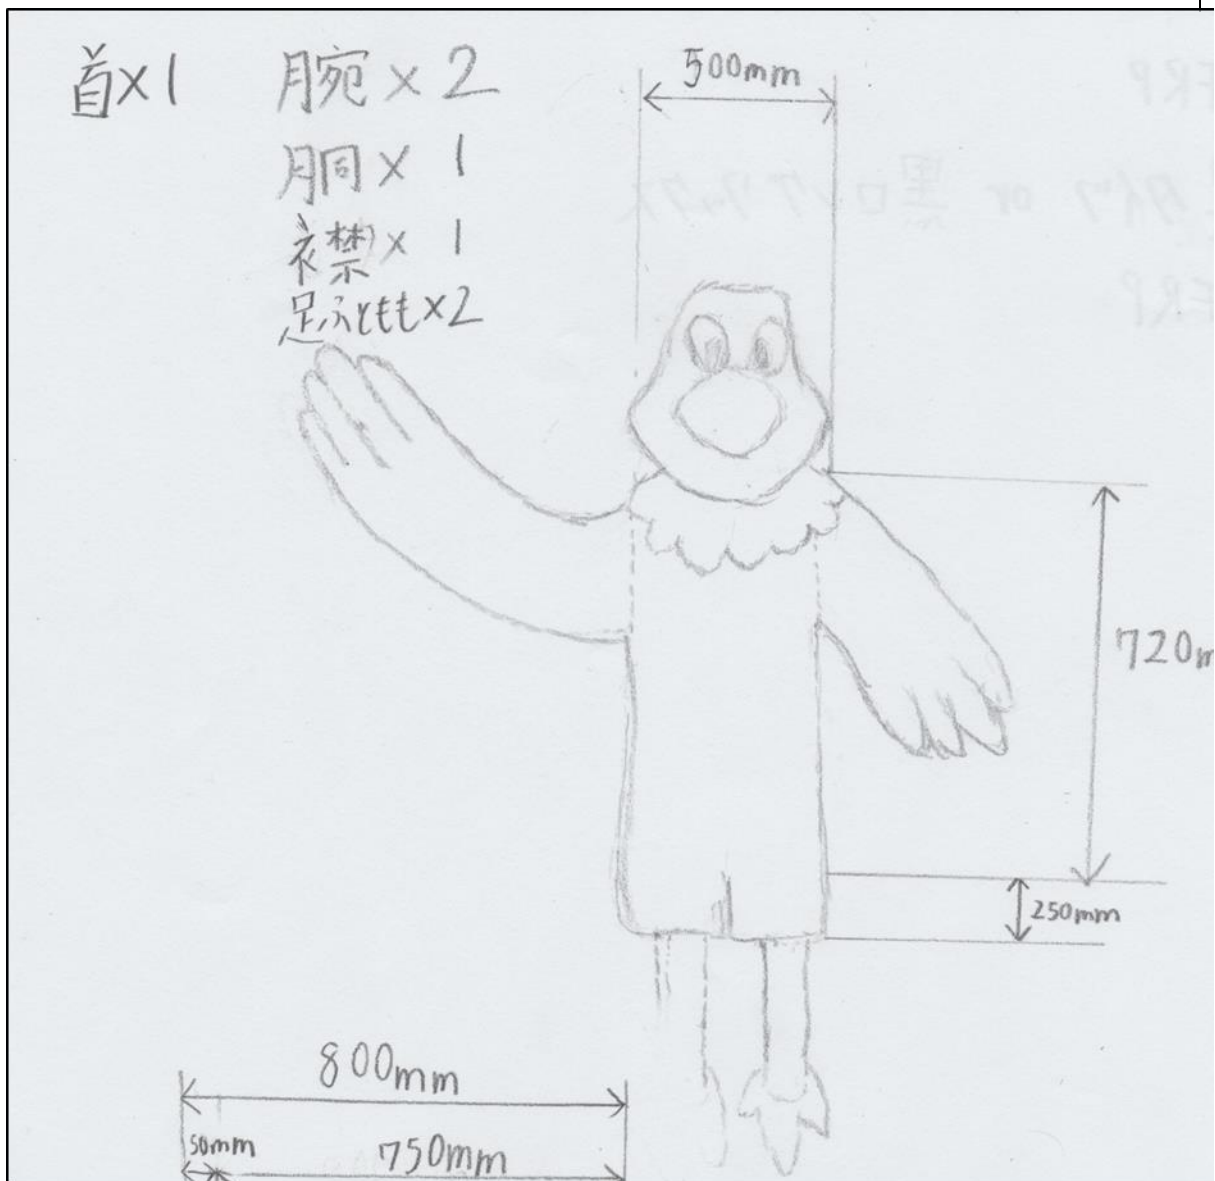 首×1 腕×2
胴×1
襟×1
足ふともも×2
500mm
720m
250mm
800mm
50mm
750mm